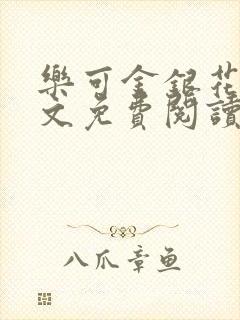 樂可金銀花
文免費閱讀
八爪章鱼